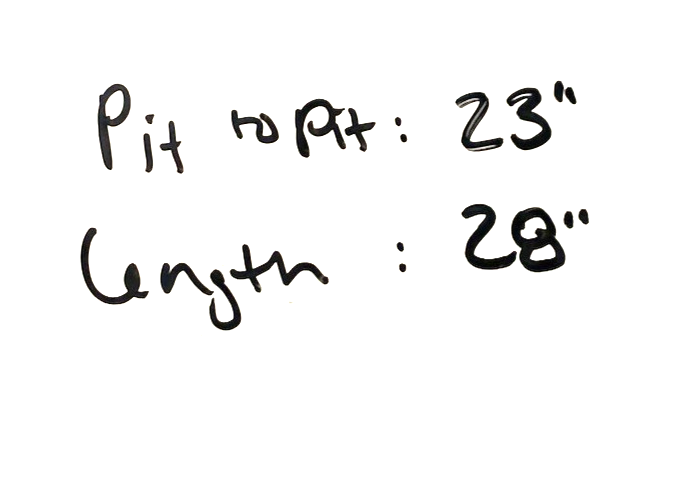 Pit to Pit: 23"
Length : 28"